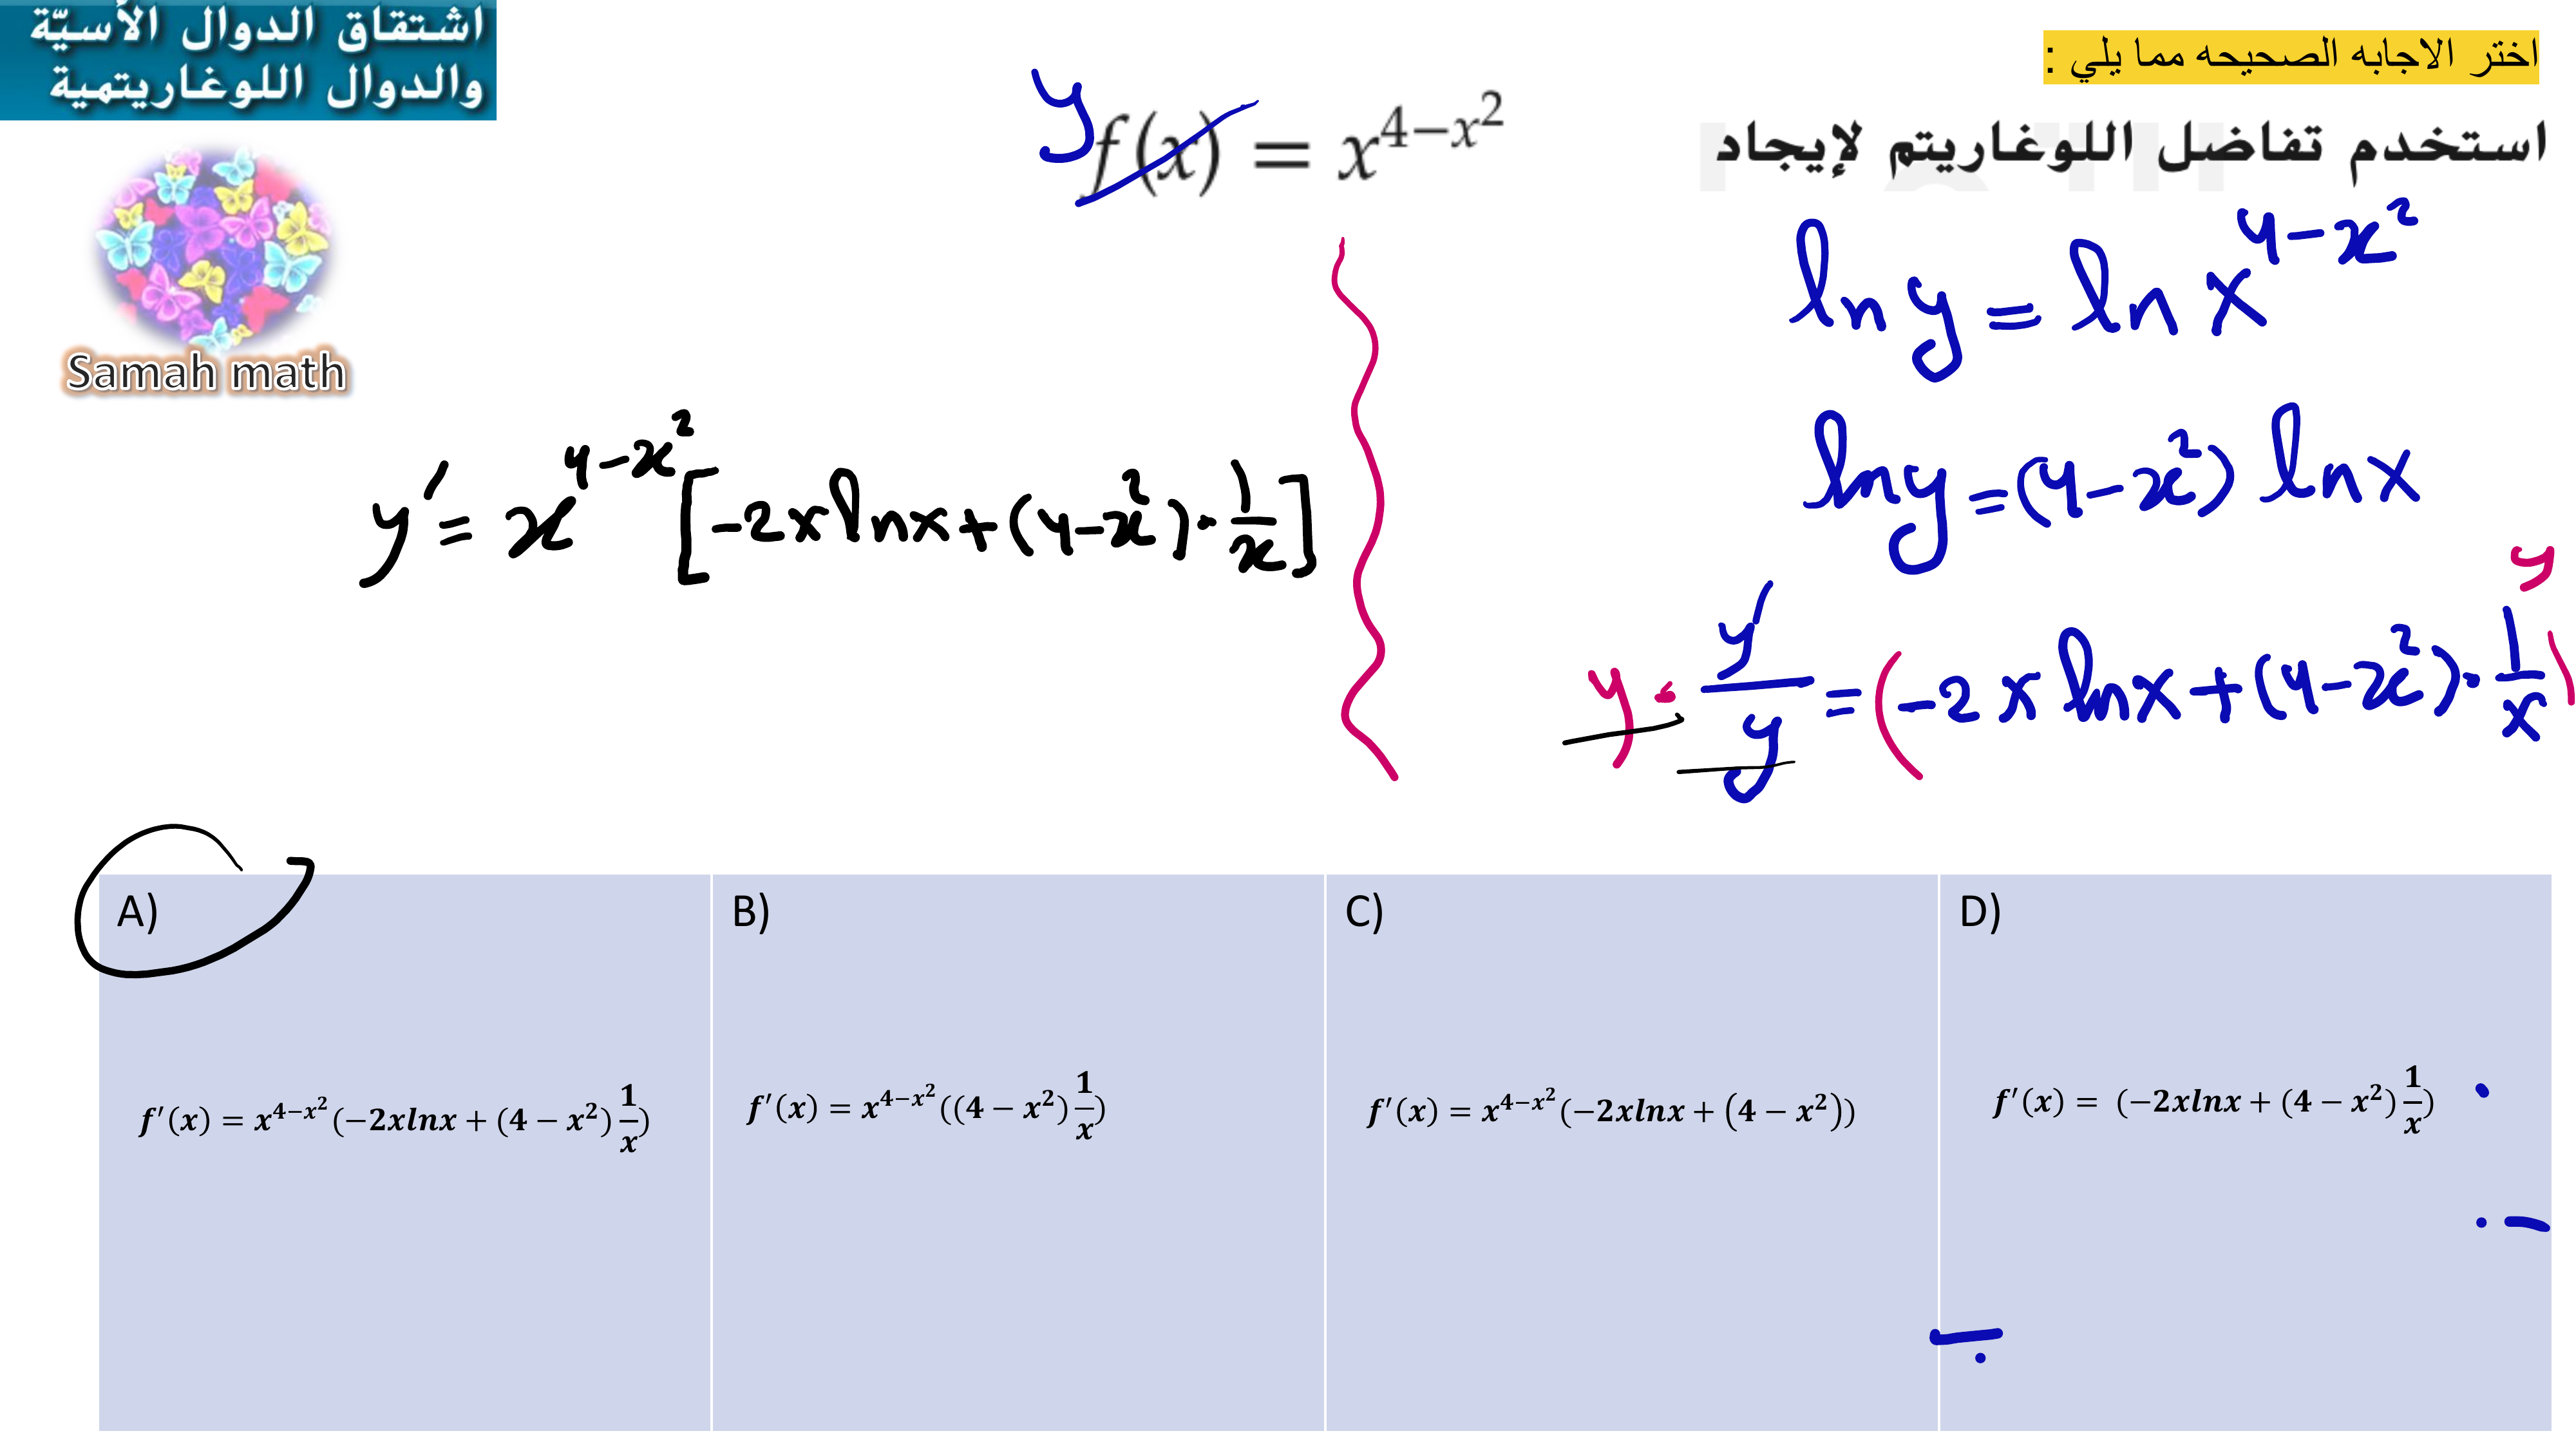 اشتقاق الدوال الأسيّة
والدوال اللوغاريتمية
اختر الاجابه الصحيحه مما يلي :
استخدم تفاضل اللوغاريتم لإيجاد
y f(x) = x^{4-x^2}
Samah math
ln y = ln x^{4-x^2}
ln y = (4-x^2) ln x
y
y · y'/y = (-2x ln x + (4-x^2) · 1/x)
y' = x^{4-x^2} [-2x ln x + (4-x^2) · 1/x]
A)
f'(x) = x^{4-x^2}(-2xlnx + (4 - x^2) 1/x)
B)
f'(x) = x^{4-x^2}((4 - x^2) 1/x)
C)
f'(x) = x^{4-x^2}(-2xlnx + (4 - x^2))
D)
f'(x) = (-2xlnx + (4 - x^2) 1/x)